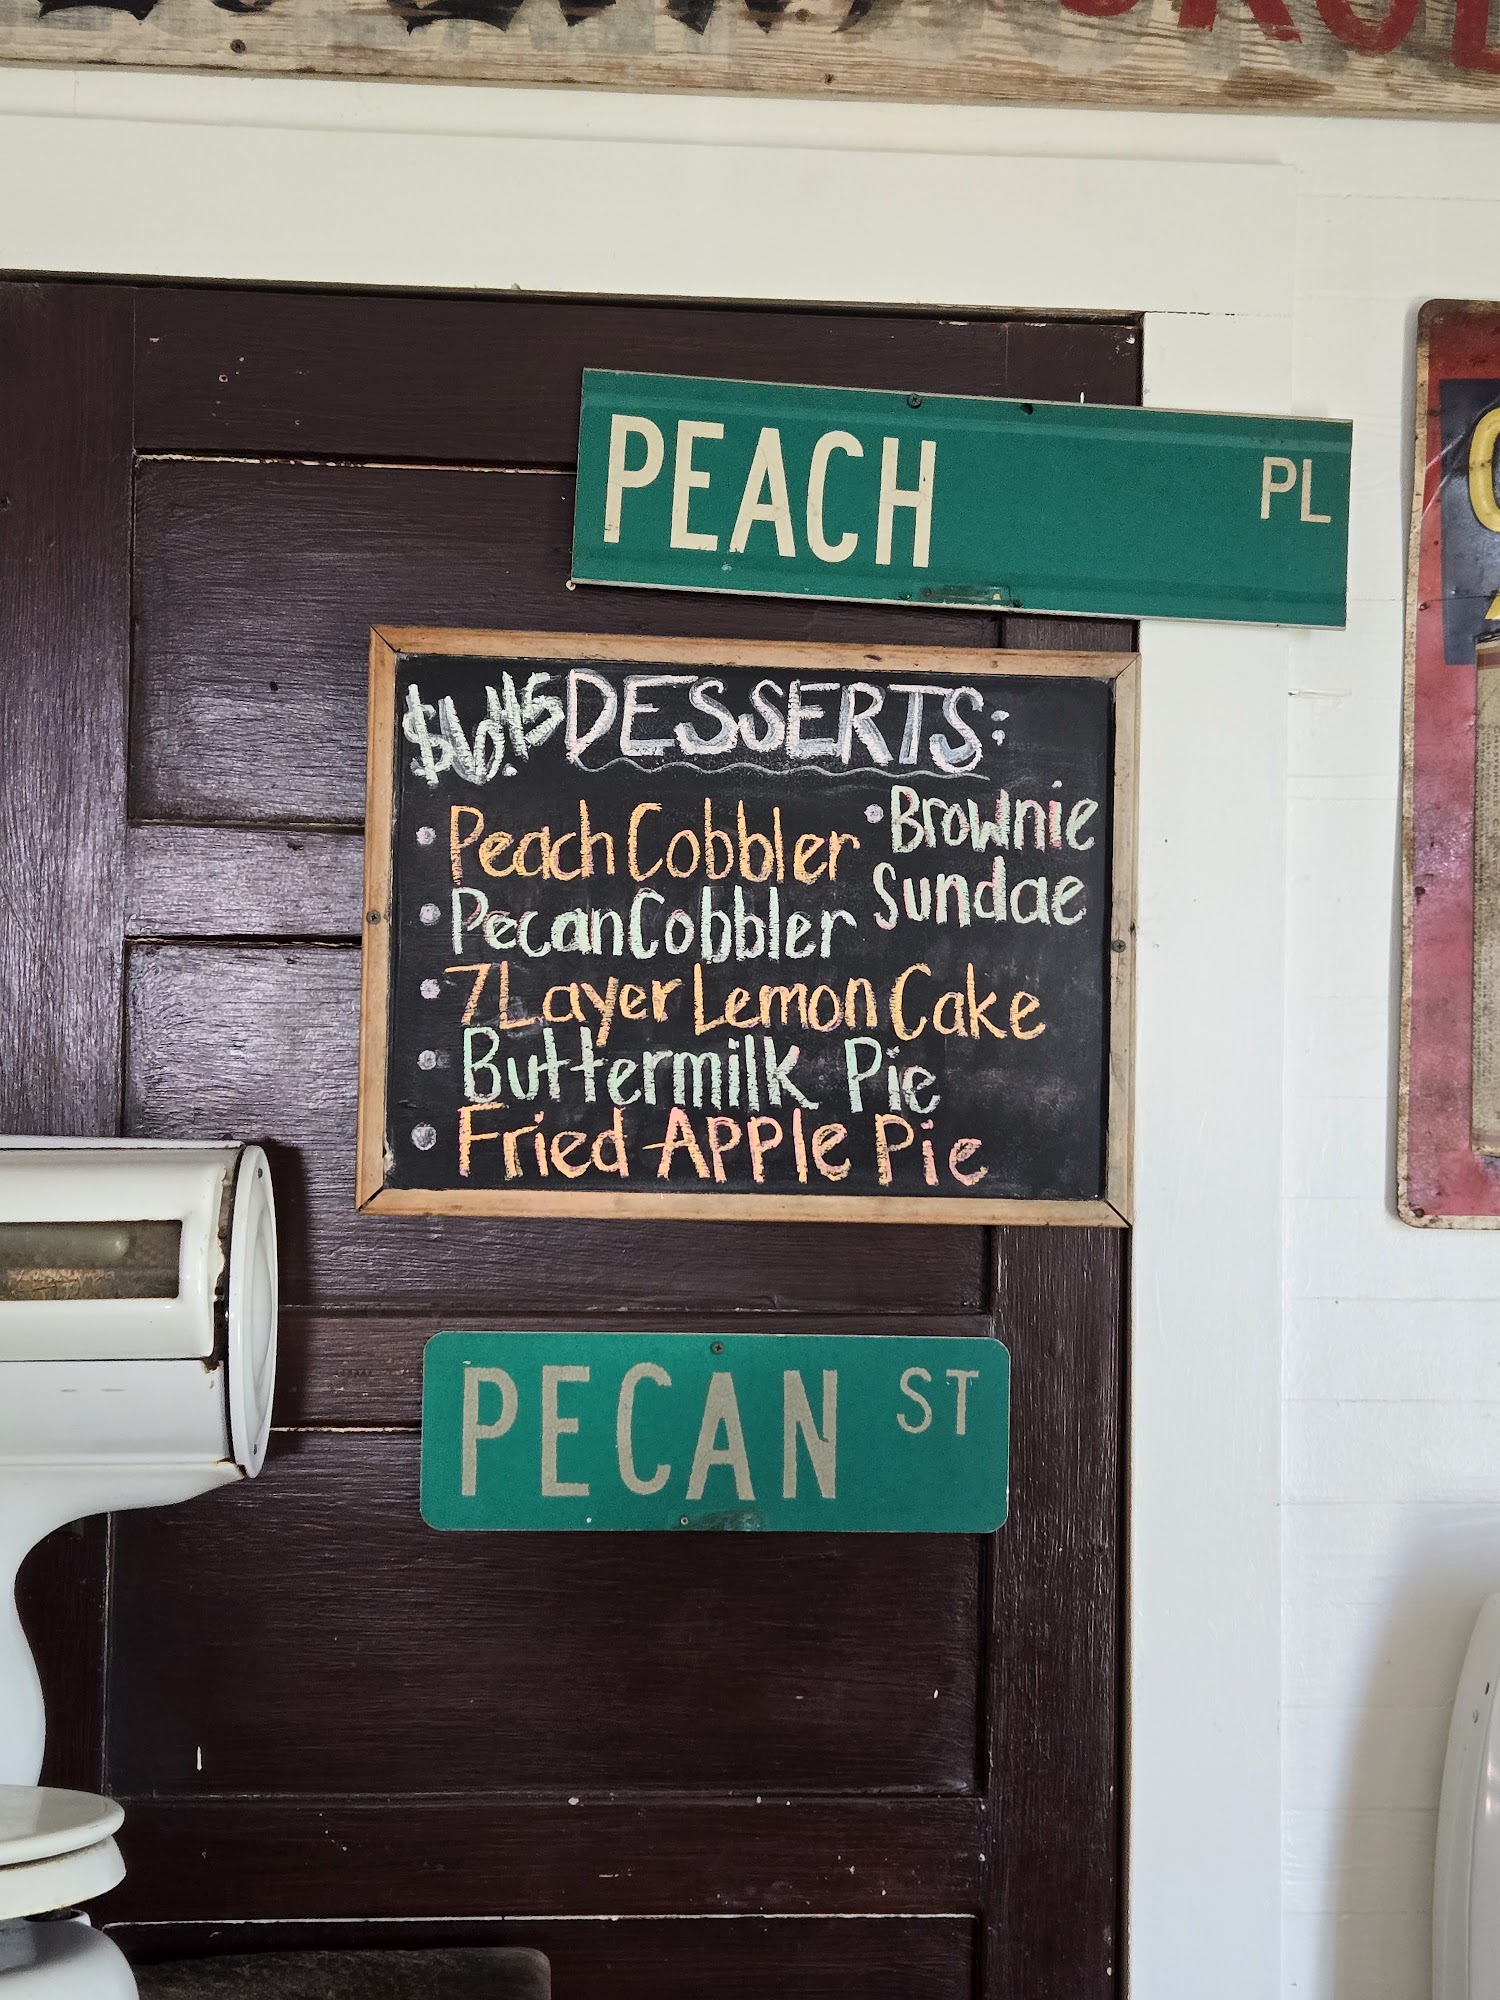 PEACH PL
$6.45 DESSERTS:
• Peach Cobbler
• Pecan Cobbler
• 7 Layer Lemon Cake
• Buttermilk Pie
• Fried Apple Pie
• Brownie
Sundae
PECAN ST